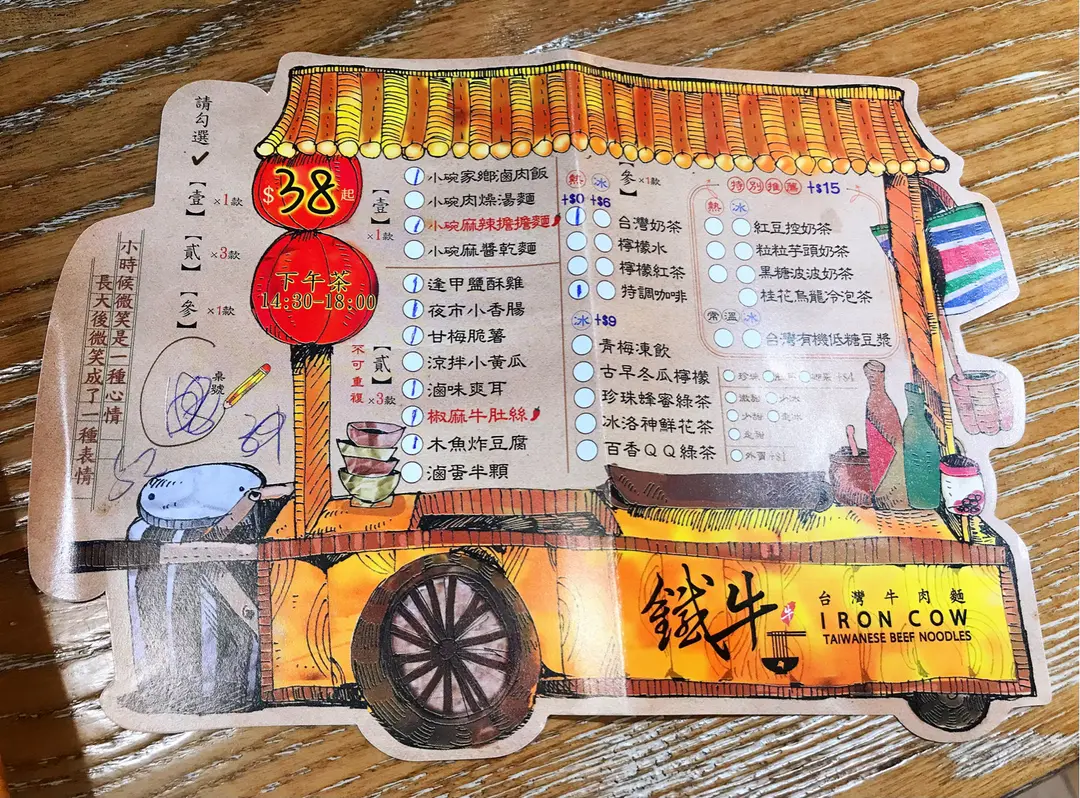 請勾選✓
【壹】×1款
【貳】×3款
【參】×1款
小時候微笑是一種心情
長大後微笑成了一種表情
桌號
39
$38起
下午茶
14:30-18:00
【壹】×1款
小碗家鄉滷肉飯
小碗肉燥湯麵
小碗麻辣擔擔麵
小碗麻醬乾麵
【貳】×3款
不可重複
逢甲鹽酥雞
夜市小香腸
甘梅脆薯
涼拌小黃瓜
滷味爽耳
椒麻牛肚絲
木魚炸豆腐
滷蛋半顆
【參】×1款
熱 冰
+$0 +$6
台灣奶茶
檸檬水
檸檬紅茶
特調咖啡
冰 +$9
青梅凍飲
古早冬瓜檸檬
珍珠蜂蜜綠茶
冰洛神鮮花茶
百香QQ綠茶
特別推薦 +$15
熱 冰
紅豆控奶茶
粒粒芋頭奶茶
黑糖波波奶茶
桂花烏龍冷泡茶
常溫 冰
台灣有機低糖豆漿
少甜
走甜
外賣+$1
鐵牛
台灣牛肉麵
IRON COW
TAIWANESE BEEF NOODLES